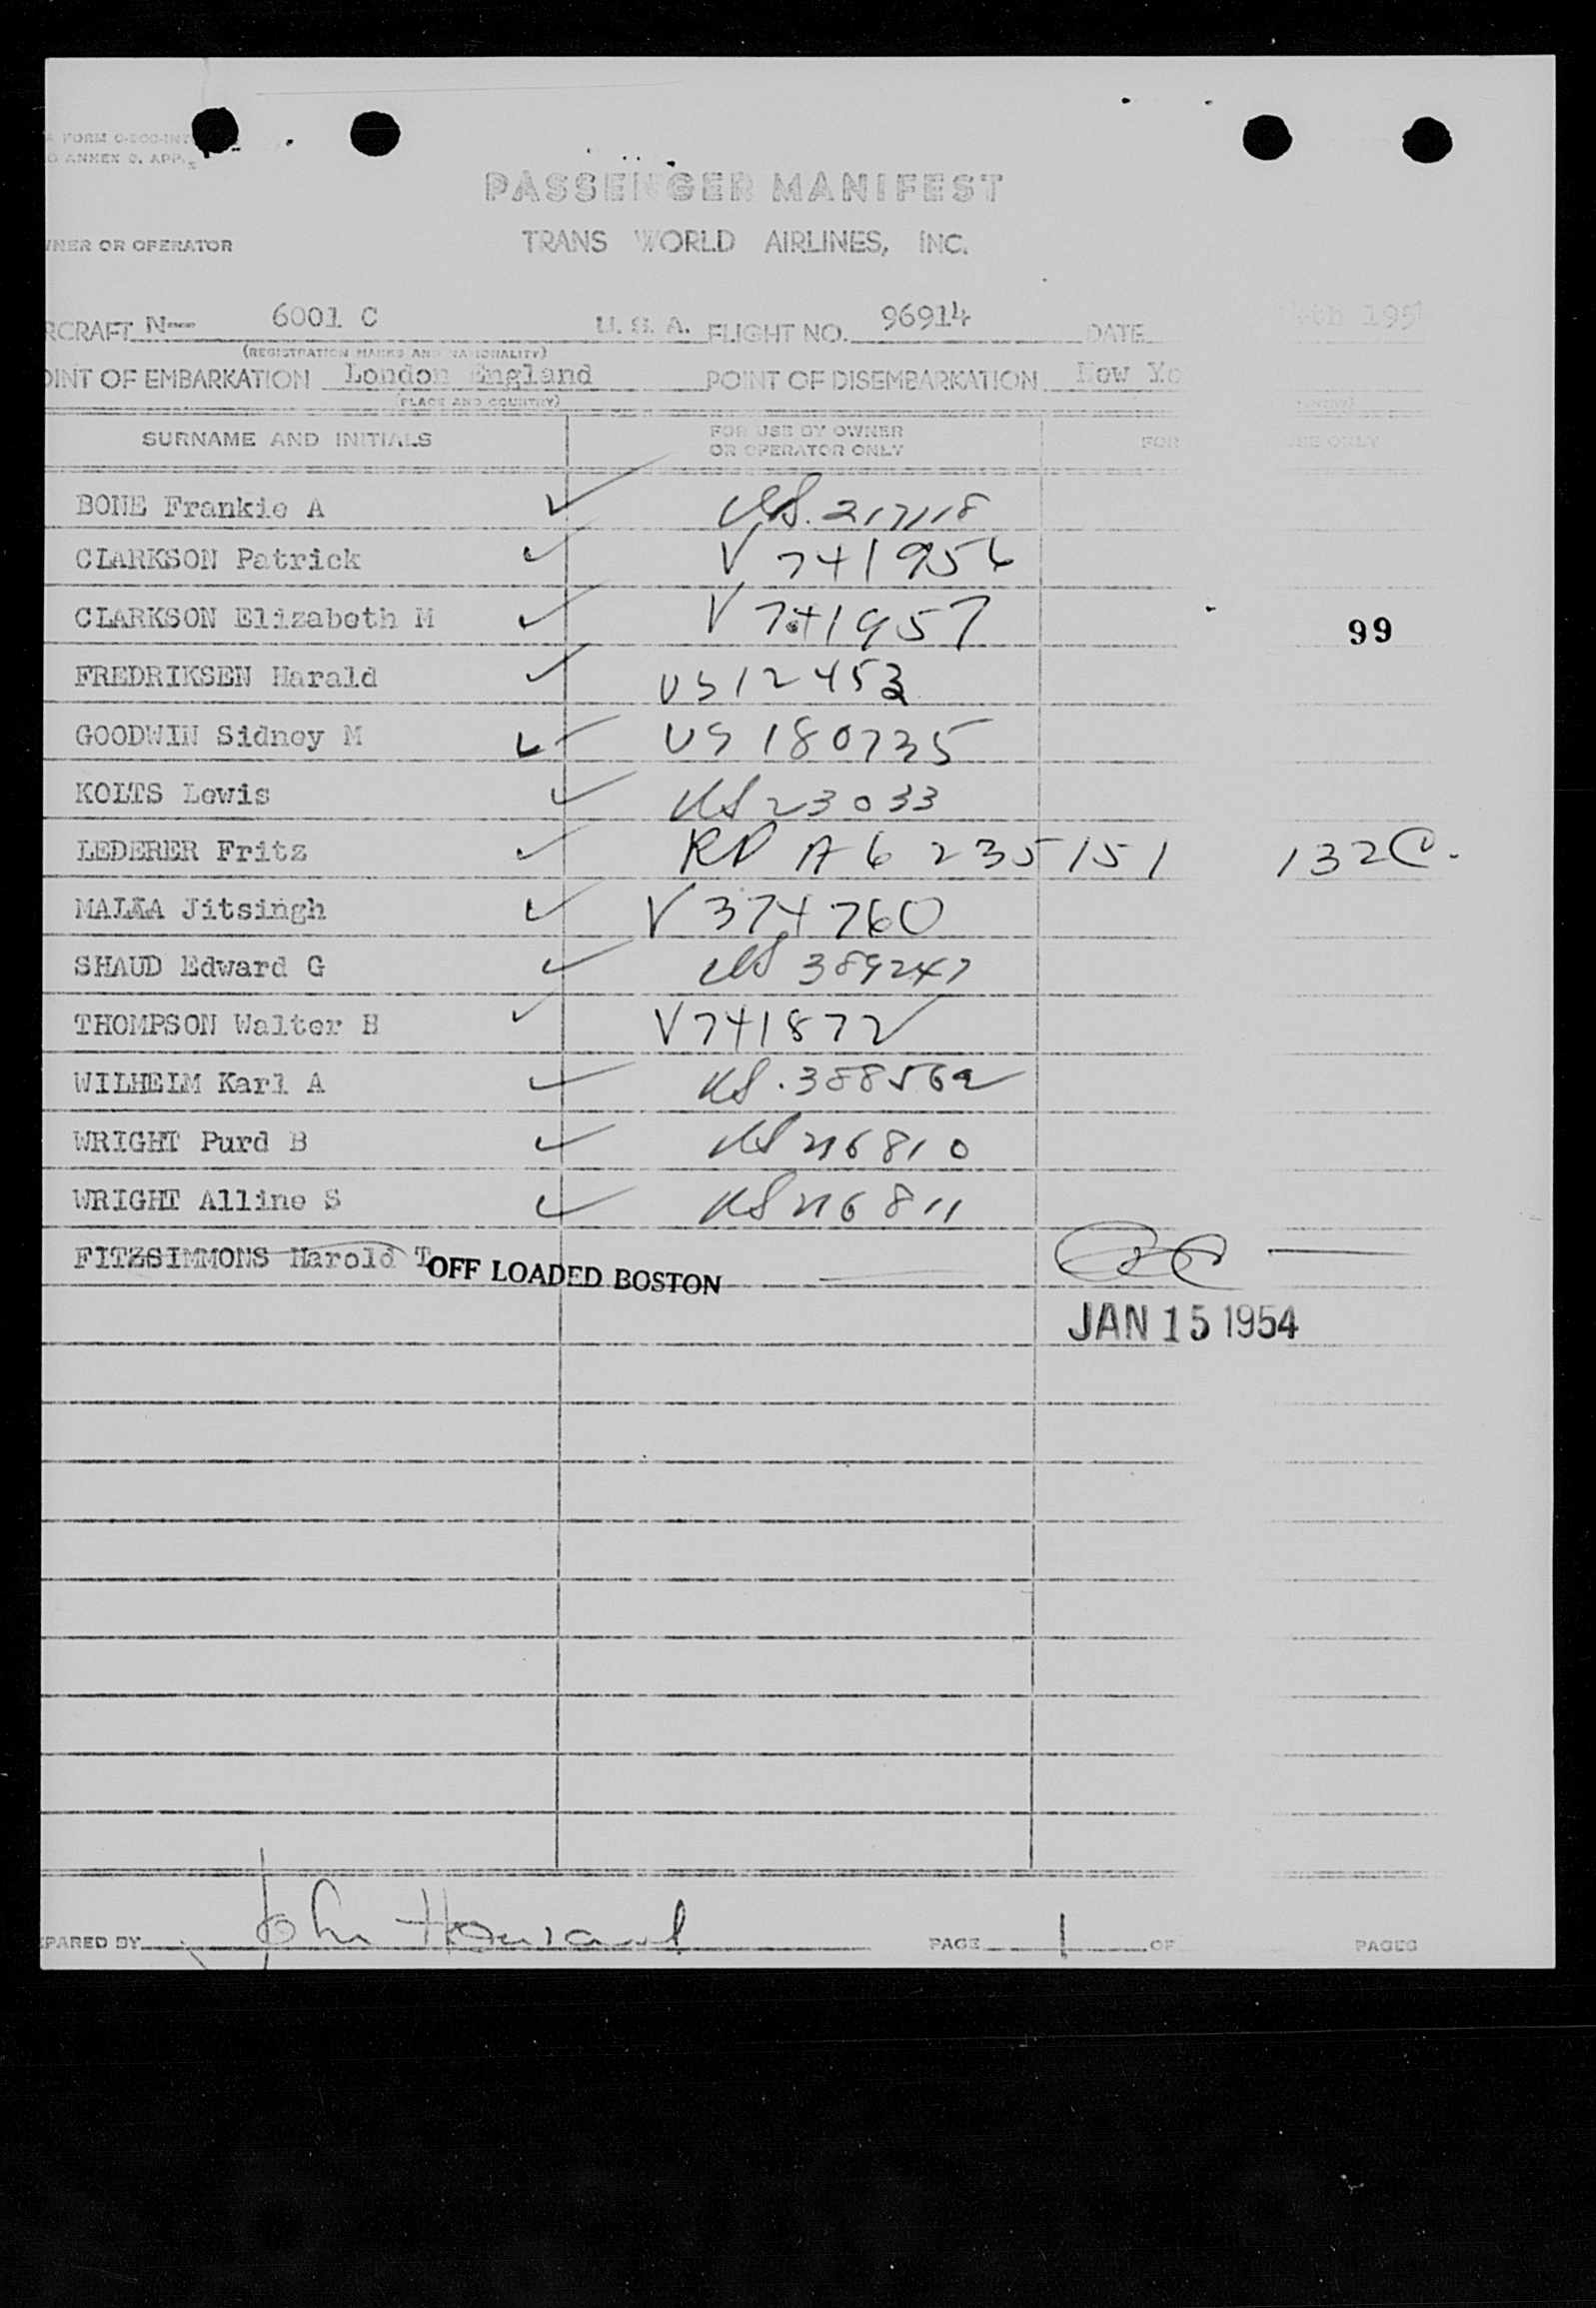 FORM
ANNEX 9, APP.
PASSENGER MANIFEST
NER OR OPERATOR TRANS WORLD AIRLINES, INC.
RCRAFT N--- 6001 C U. S. A. FLIGHT NO. 96914 DATE 195
(REGISTRATION MARKS AND NATIONALITY)
OINT OF EMBARKATION London England POINT OF DISEMBARKATION New Yo
(PLACE AND COUNTRY)
SURNAME AND INITIALS FOR USE BY OWNER OR OPERATOR ONLY FOR USE ONLY
BONE Frankie A ✓ US. 217118
CLARKSON Patrick ✓ V 741956
CLARKSON Elizabeth M ✓ V 741957 99
FREDRIKSEN Harald ✓ US 12453
GOODWIN Sidney M ✓ US 180735
KOLTS Lewis ✓ US 23033
LEDERER Fritz ✓ RP A6 235151 132C.
MALKA Jitsingh ✓ V 374760
SHAUD Edward G ✓ US 389247
THOMPSON Walter H ✓ V741872
WILHELM Karl A ✓ US. 388562
WRIGHT Purd B ✓ US 216810
WRIGHT Alline S ✓ US 216811
FITZSIMMONS Harold T OFF LOADED BOSTON
JAN 15 1954
PARED BY John PAGE 1 OF PAGES